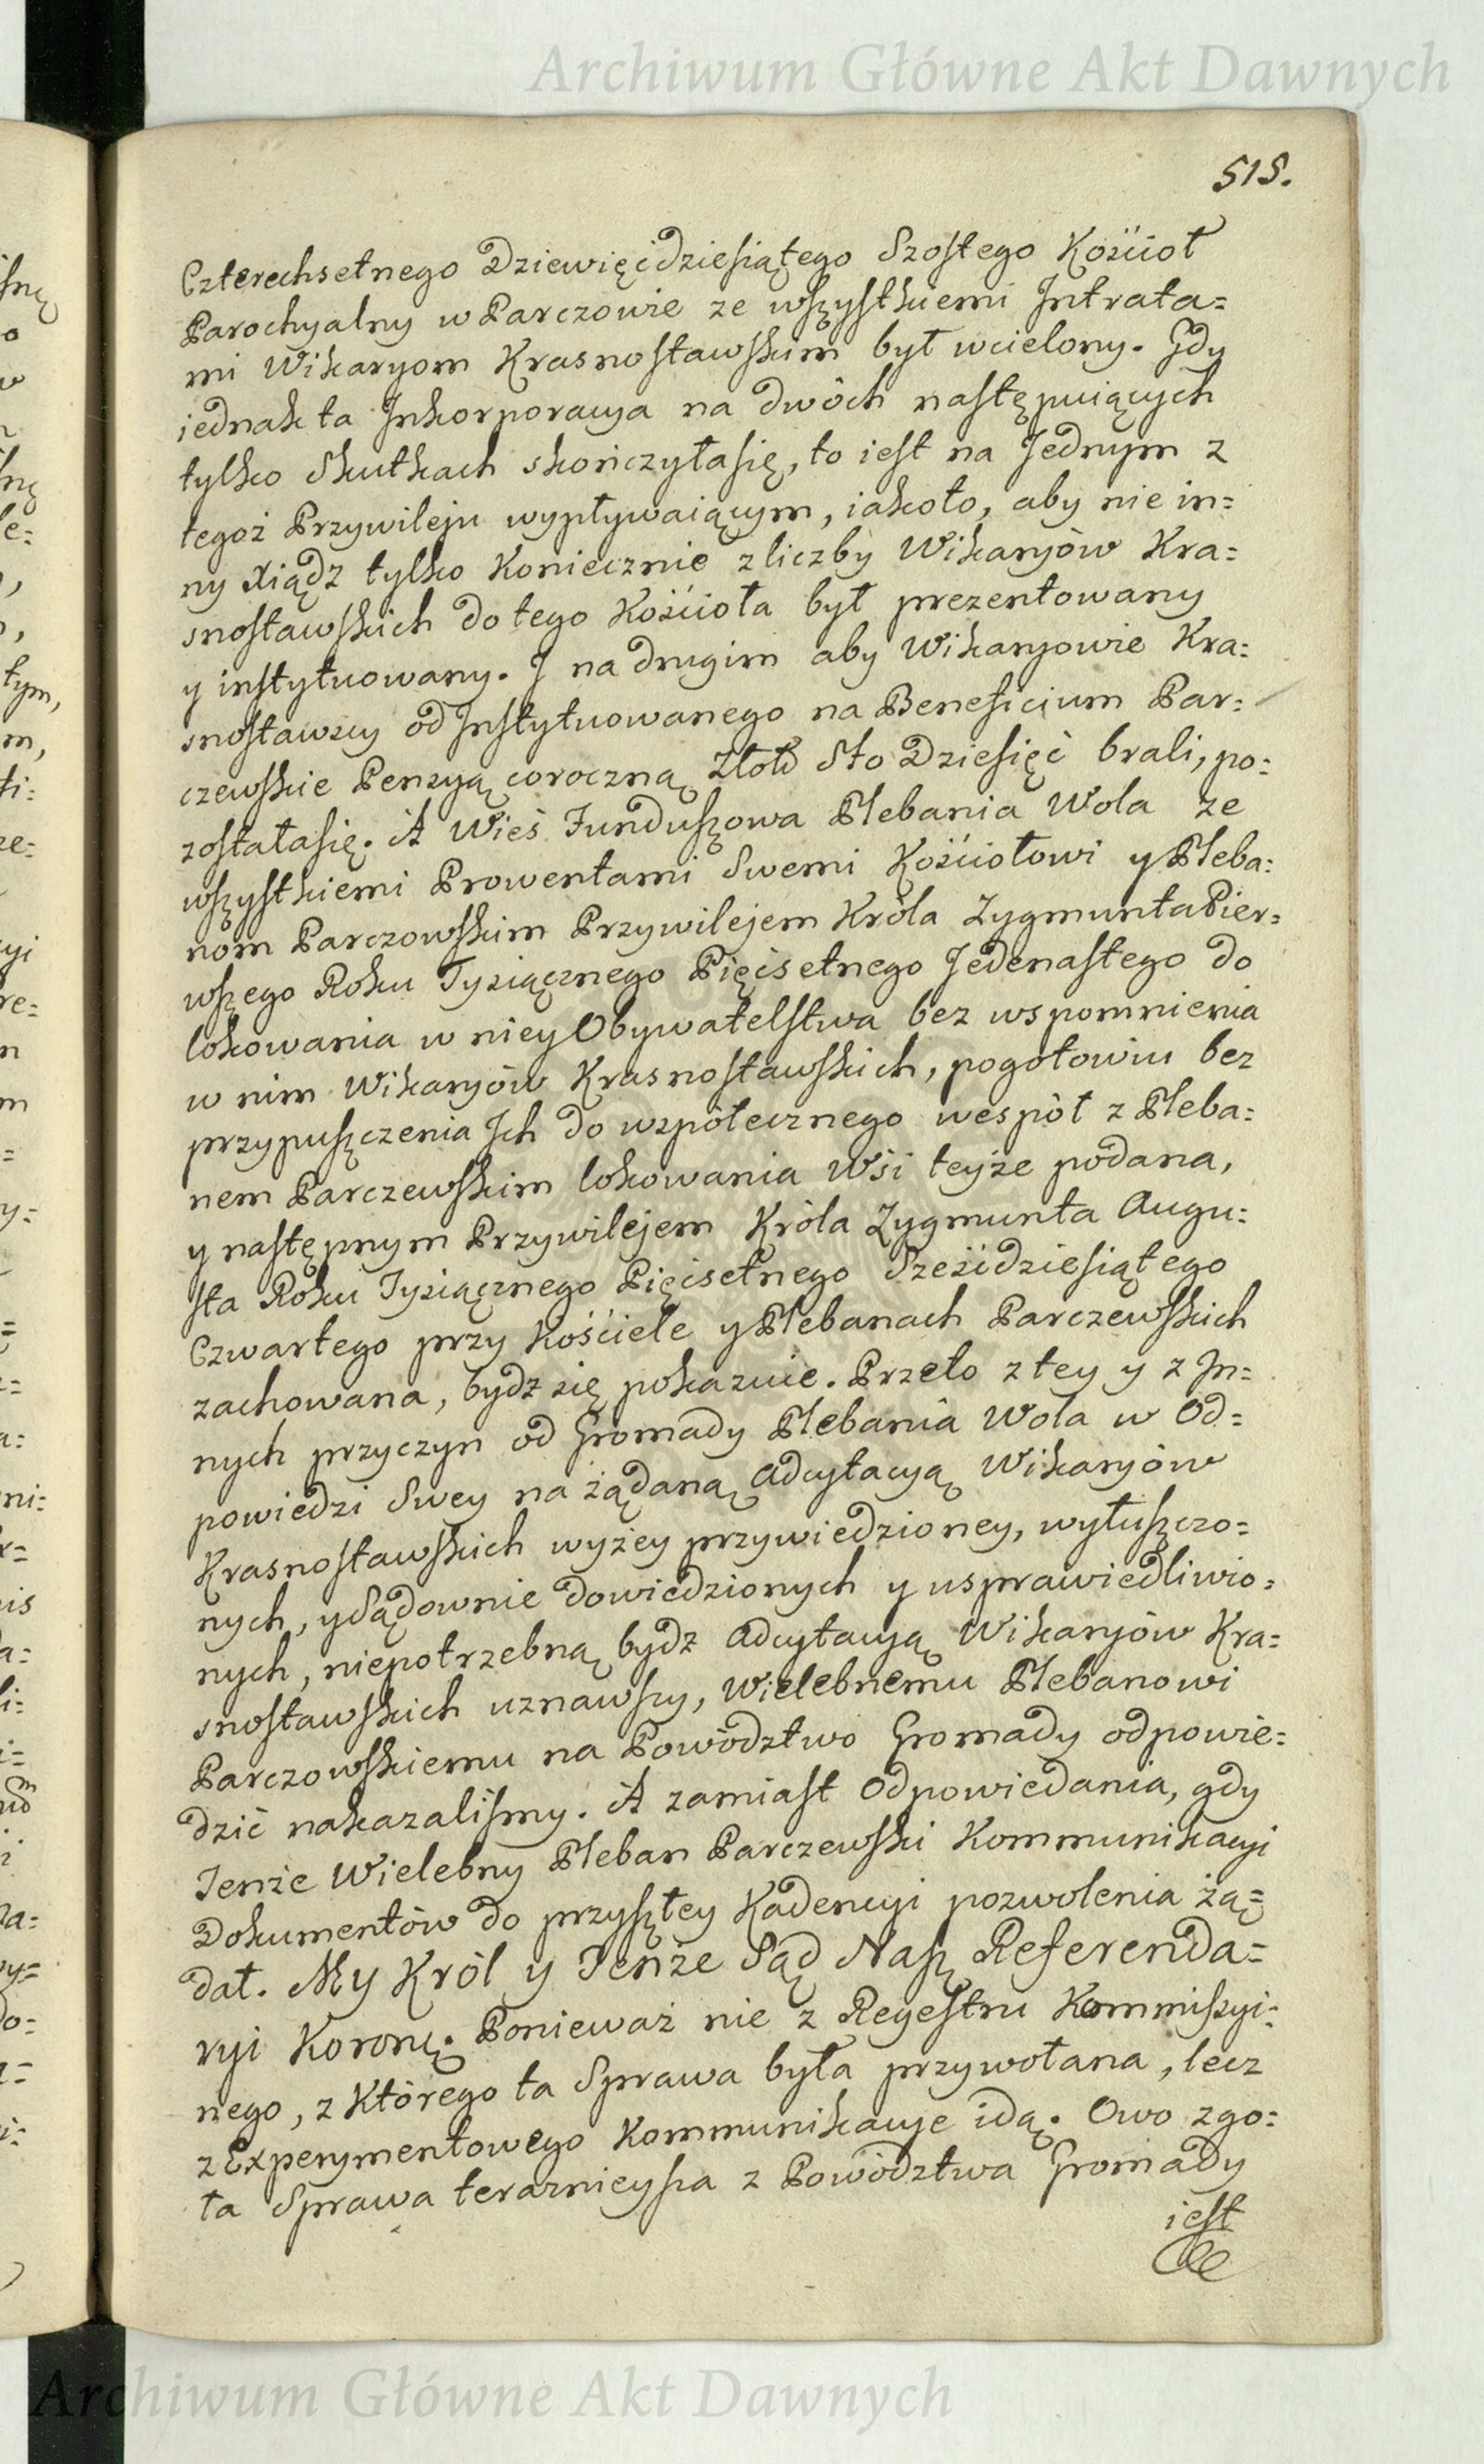 Archiwum Główne Akt Dawnych
515.
Czterechsetnego Dziewięćdziesiątego Szostego Kościoł
Parochyalny w Parczowie ze wszystkiemi Intrata=
mi Wikaryom Krasnostawskim był wcielony. Gdy
iednak ta Inkorporacya na dwóch następuiących
tylko Skutkach skończyłasię, to iest na Jednym z
tegoż Przywileju wypływaiącym, iakoto, aby nie in=
ny Xiądz tylko Koniecznie z liczby Wikaryów Kra=
snostawskich do tego Kościoła był prezentowany
y instytuowany. J na drugim aby Wikaryowie Kra=
snostawscy od Instytuowanego na Beneficium Par=
czewskie Penzyą coroczną Złotch Sto Dziesięć brali, po=
zostałasię. A Wieś Funduszowa Plebania Wola ze
wszystkiemi Prowentami Swemi Kościołowi y Pleba=
nom Parczowskim Przywilejem Króla Zygmunta Pier=
wszego Roku Tysiącznego Pięćsetnego Jedenastego do
lokowania w niey Obywatelstwa bez wspomnienia
w nim Wikaryów Krasnostawskich, pogotowiu bez
przypuszczenia Ich do wspólecznego wespół z Pleba=
nem Parczewskim lokowania Wsi teyże podana,
y następnym Przywilejem Króla Zygmunta Augu=
sta Roku Tysiącznego Pięćsetnego Sześćdziesiątego
Czwartego przy Kościele y Plebanach Parczewskich
zachowana, bydz się pokazuie. Przeto z tey y z In=
nych przyczyn od Gromady Plebania Wola w Od=
powiedzi Swey na żądaną Adcytacyą Wikaryów
Krasnostawskich wyżey przywiedzioney, wyłuszczo=
nych, y Sądownie dowiedzionych y usprawiedliwio=
nych, niepotrzebną bydz Adcytacyą Wikaryów Kra=
snostawskich uznawszy, Wielebnemu Plebanowi
Parczowskiemu na Powództwo Gromady odpowie=
dzić nakazaliśmy. A zamiast Odpowiedania, gdy
Tenże Wielebny Pleban Parczewski Kommunikacyi
Dokumentów do przyszłey Kadencyi pozwolenia żą=
dał. My Król y Tenże Sąd Nasz Referenda=
ryi Koronę. Ponieważ nie z Regestru Kommiszyi=
nego, z Którego ta Sprawa była przywołana, lecz
z Experymentowego Kommunikacye idą. Owo zgo=
ła Sprawa teraznieysza z Powództwa Gromady
iest
Archiwum Główne Akt Dawnych